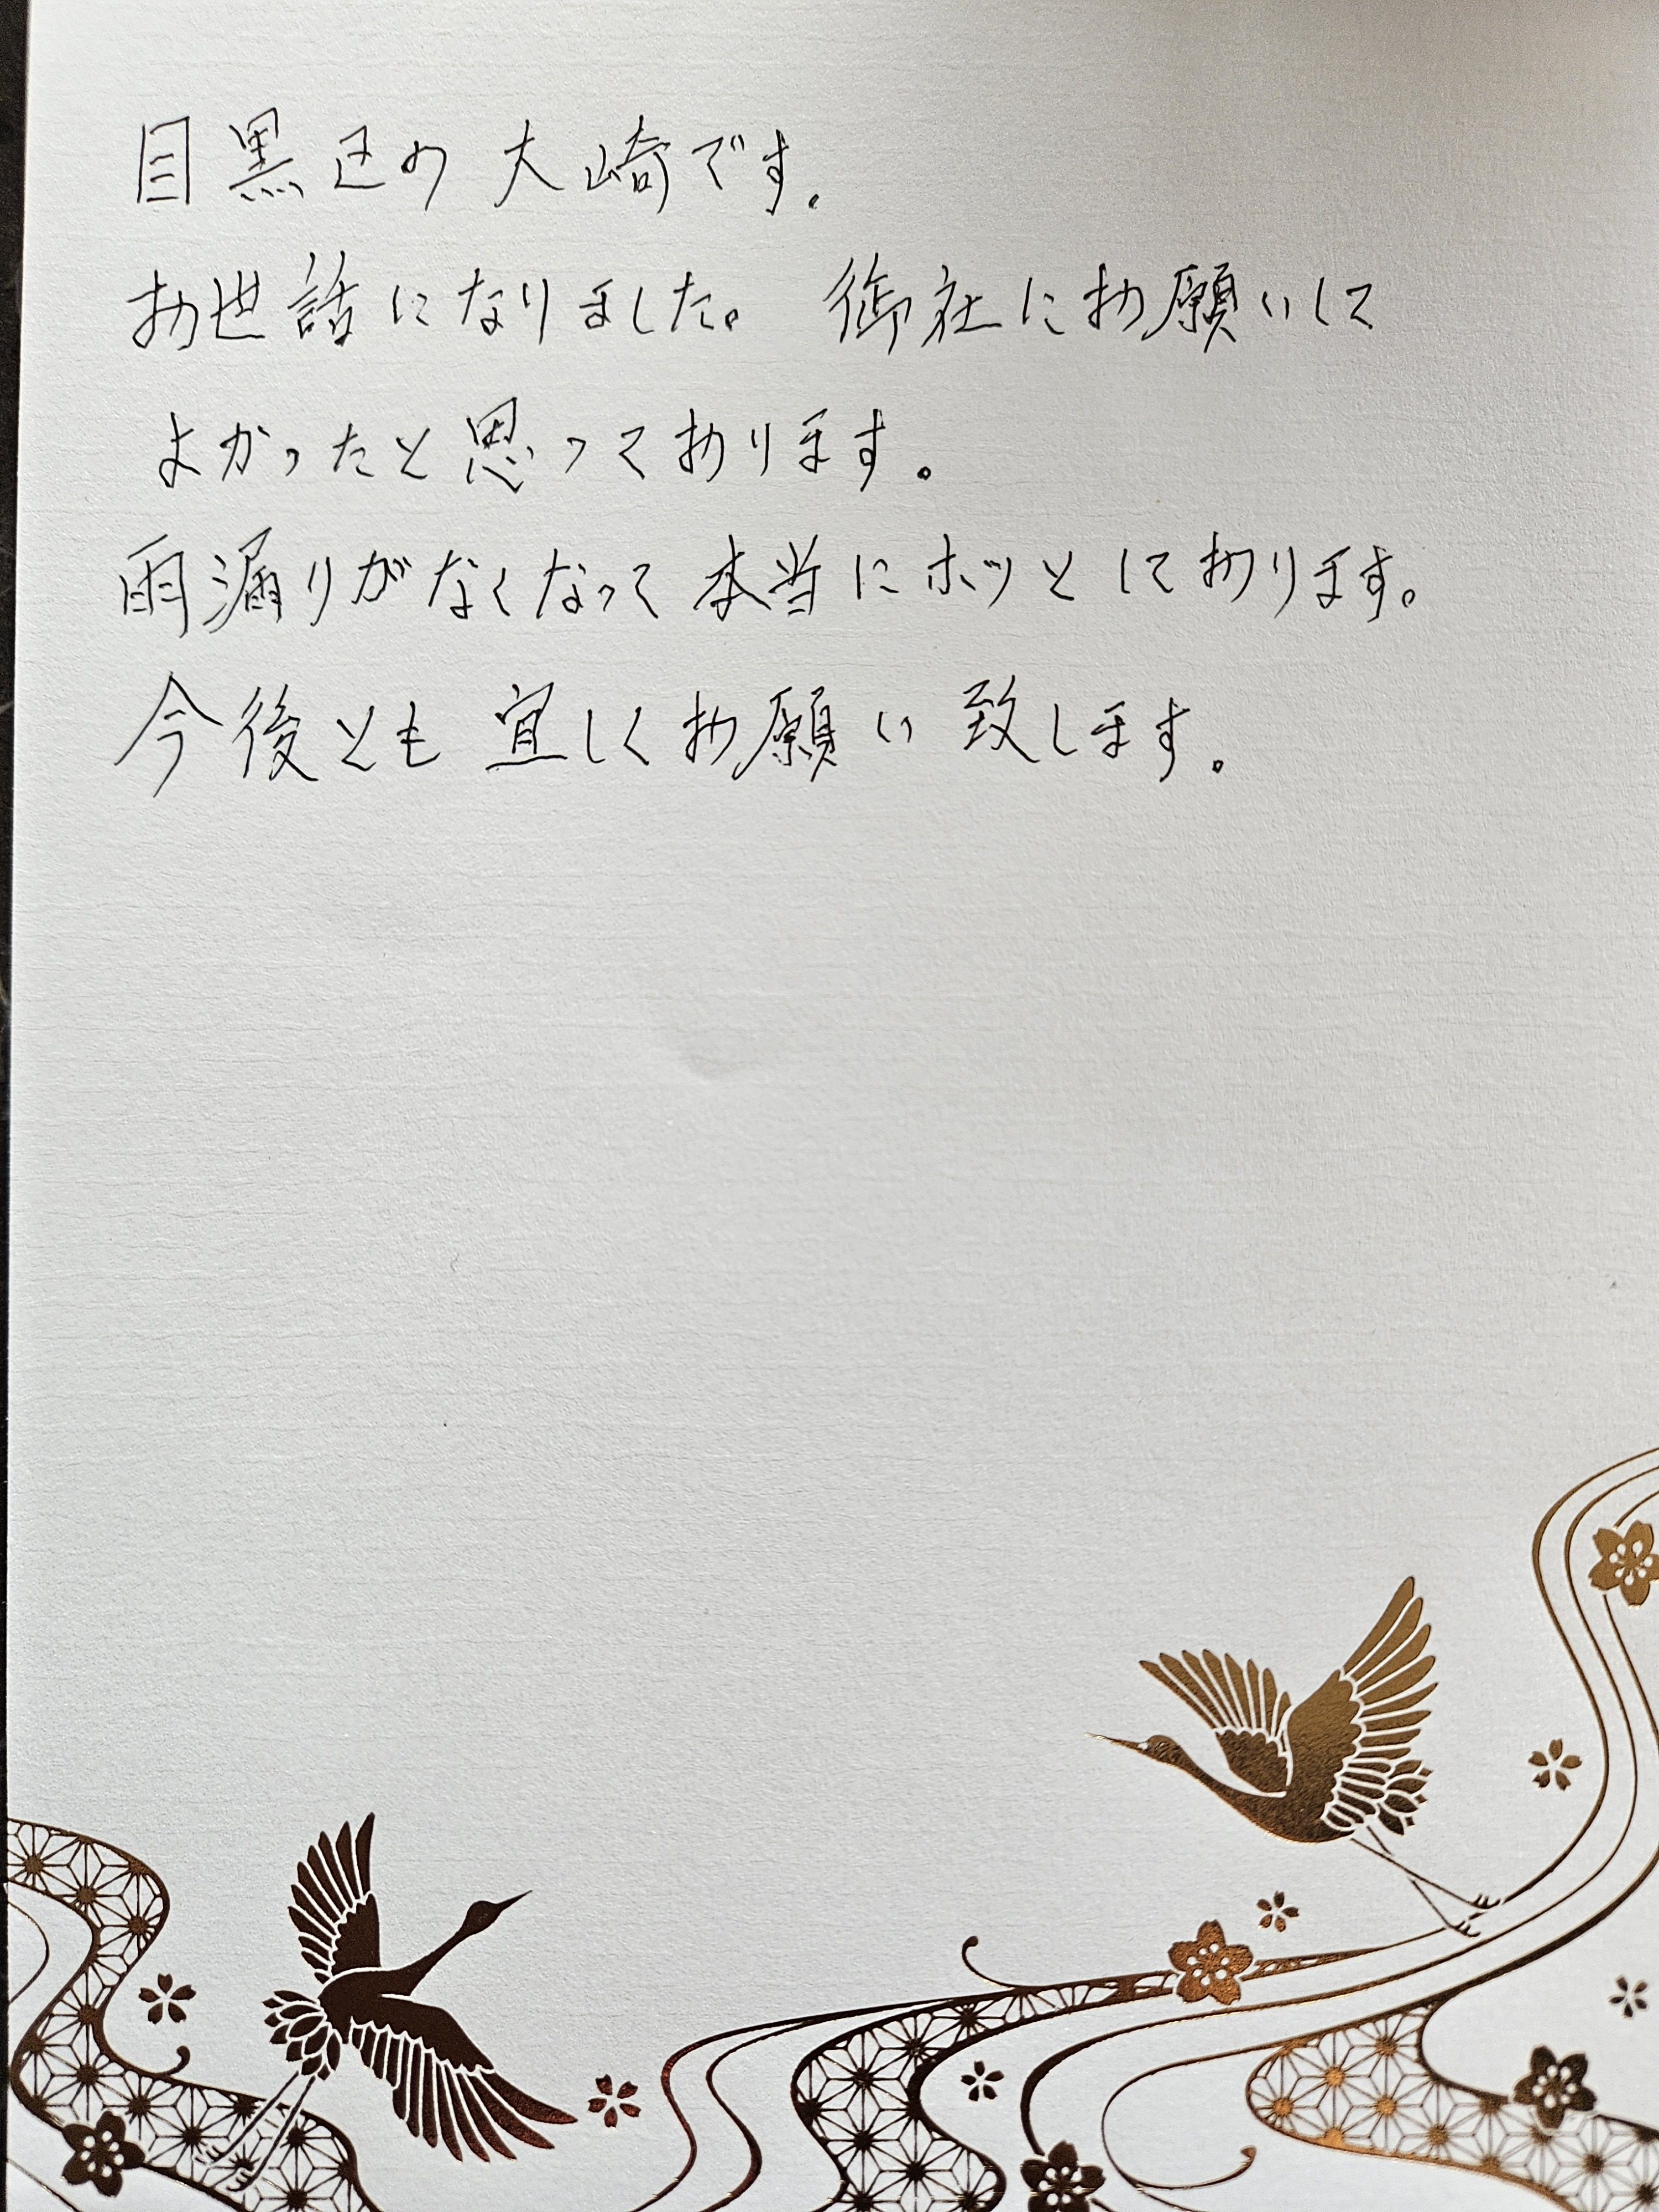 目黒区の大崎です。
お世話になりました。 御社にお願いして
よかったと思っております。
雨漏りがなくなって本当にホッとしております。
今後とも宜しくお願い致します。